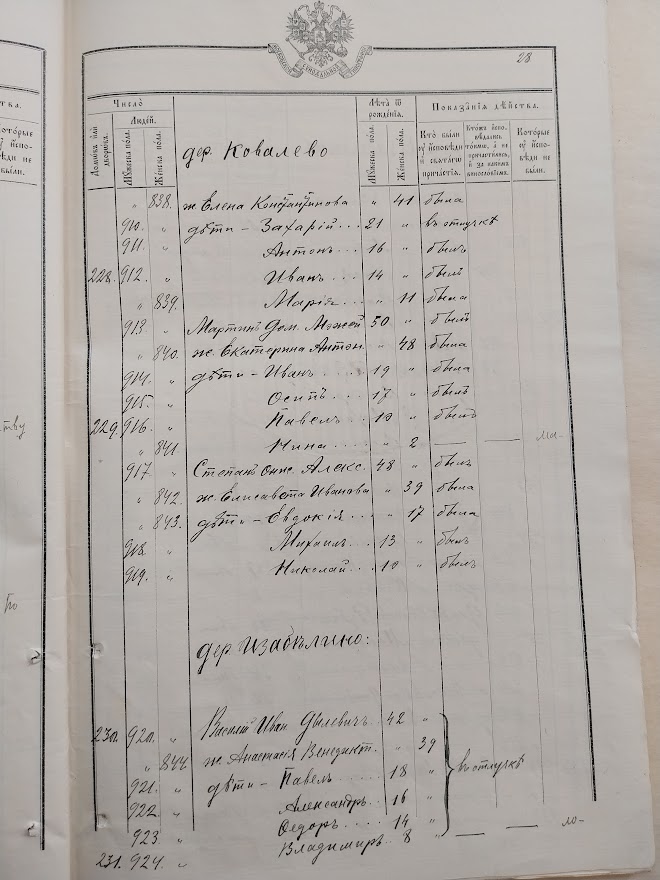 28
Число̀
Людей.
Домѡвъ или дворѡвъ.
Мꙋжеска пола.
Женска пола.
дер. Ковалево
Лѣта ѿ рожденїѧ.
Мꙋжеска пола.
Женска пола.
Показанїѧ дѣйства.
Кто̀ были ᲂу҆ и҆сповѣди и҆ свѧта́гѡ причастїѧ.
Которые ᲂу҆ и҆сповѣди не были.
" 838. ж. Елена Константинова " 41 была
910. " дѣти - Захарій ... 21 " въ отпускѣ
911. " Антонъ ... 16 " былъ
228. 912. " Иванъ ... 14 " былъ
" 839. Марія .. " 11 была
913. " Мартинъ Дом. 50 " былъ
" 840. ж. Екатерина Антон. " 48 была
914. " дѣти - Иванъ .... 19 " была
915. " Осипъ ... 17 " былъ
229. 916. " Павелъ .. 10 " былъ
" 841 Нина .... " 2 — — ма-
917. " Степанъ Алекс. 48 " былъ
" 842. ж. Елисавета Иванова " 39 была
" 843. дѣти - Евдокія ... " 17 была
918. " Михаилъ .. 13 " былъ
919. " Николай ... 10 " былъ
дер. Изабѣлино:
230. 920. " Василій Иван. 42 "
" 844 ж. Анастасія Венедикт. " 39
921. " дѣти - Павелъ ...... 18 " въ отпускѣ
922. " Александръ .. 16 "
923 " Ѳедоръ ..... 14 "
231. 924. " Владимиръ . 8 " — — ло-